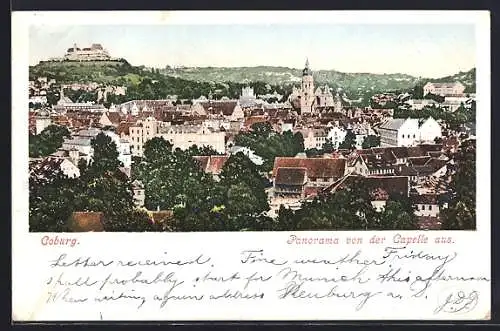 Coburg. Panorama von der Capelle aus.
Letter received. Fine weather Friday
shall probably start for Munich this afternoon
When writing again address Nenburg a. D.